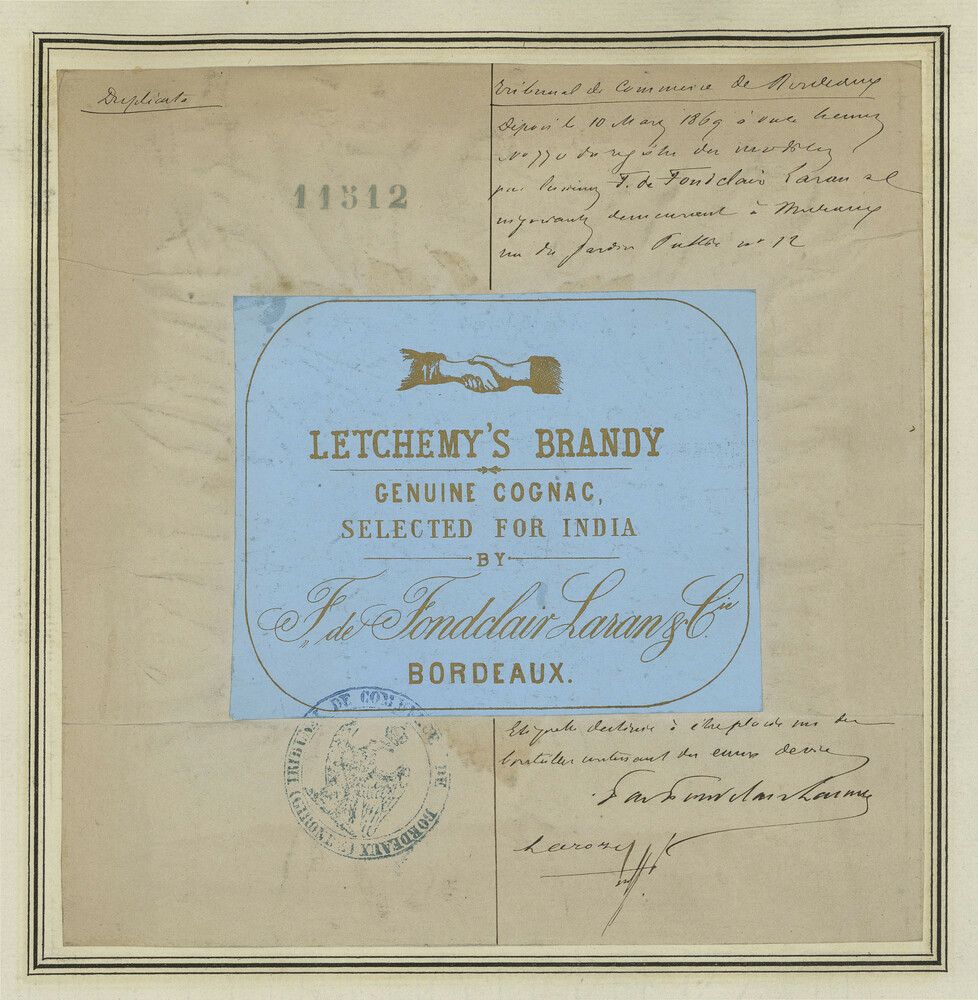 Duplicata
11512
Tribunal de Commerce de Bordeaux
Dépose le 10 Mars 1869 à onze heures
No 770 du registre des modèles
par les sieurs F. de Fondclair Laran et
négociants demeurant à Bordeaux
rue du Jardin Public no 12
LETCHEMY'S BRANDY
GENUINE COGNAC,
SELECTED FOR INDIA
BY
F. de Fondclair Laran & Cie
BORDEAUX.
TRIBUNAL DE COMMERCE DE BORDEAUX (GIRONDE)
Etiquette destinée à être placée sur des
bouteilles contenant des eaux de vie
F de Fondclair Laran